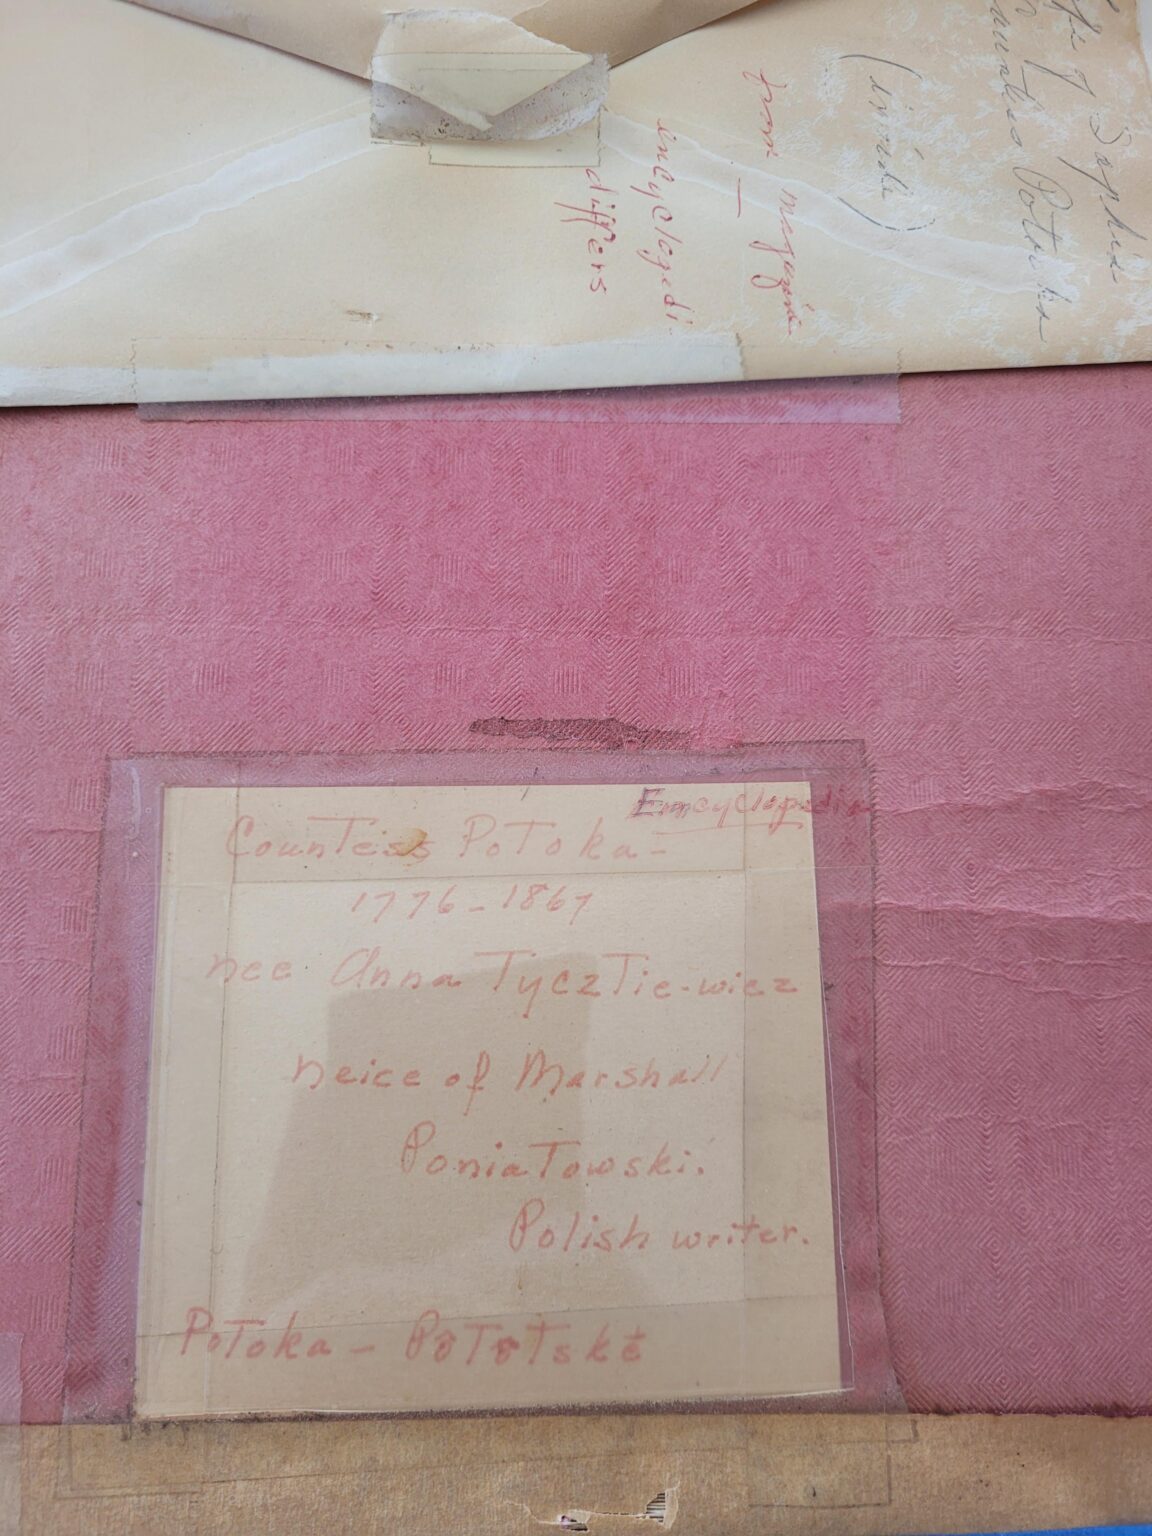 of Sophie
Countess Potocka
(inside)
from magazine
—
encyclopedi
differs
Encyclopedia
Countess Potoka-
1776-1867
nee Anna Tycztie-wicz
neice of Marshall
Poniatowski.
Polish writer.
Potoka - Pŏtŏtskĕ